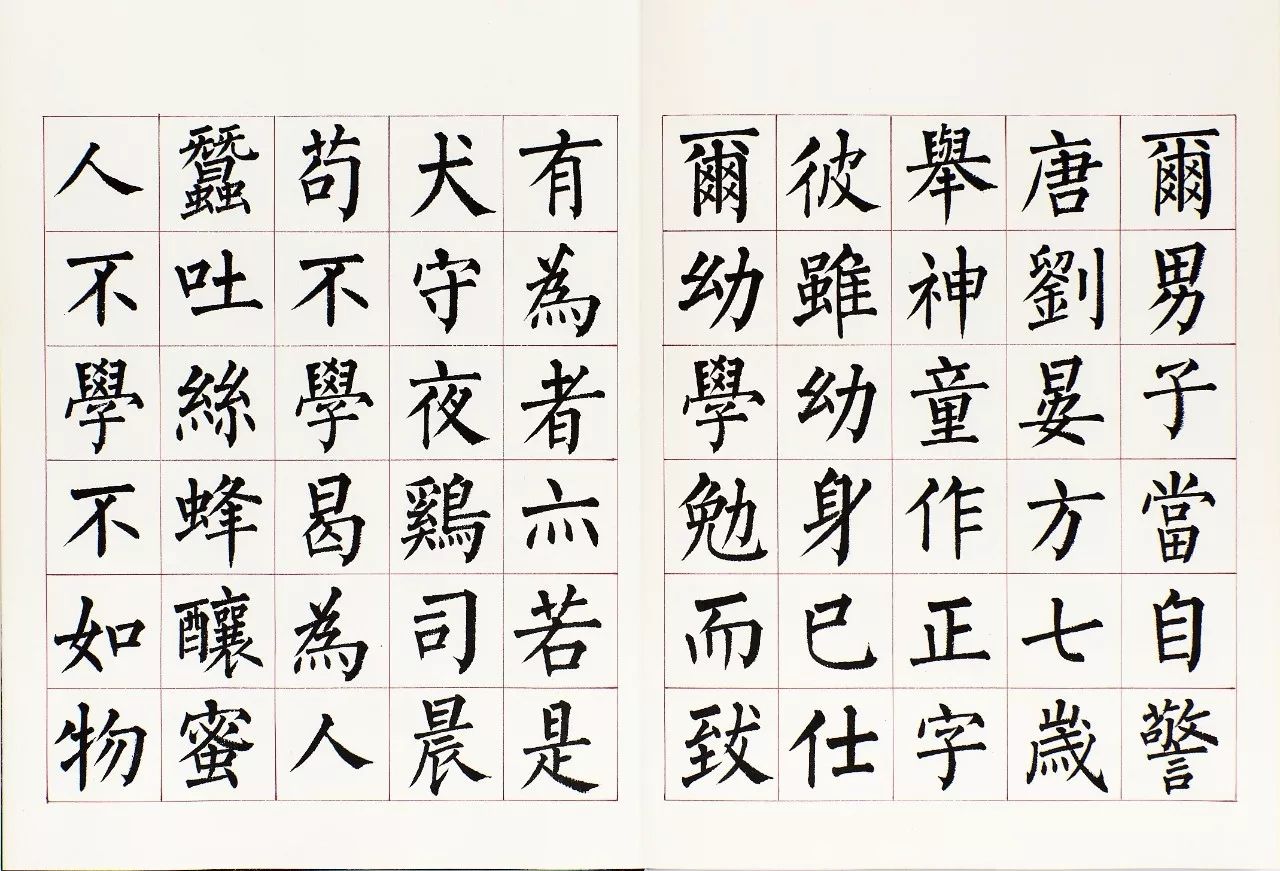 爾男子當自警
唐劉晏方七歲
舉神童作正字
彼雖幼身已仕
爾幼學勉而致
有為者亦若是
犬守夜鷄司晨
苟不學曷為人
蠶吐絲蜂釀蜜
人不學不如物